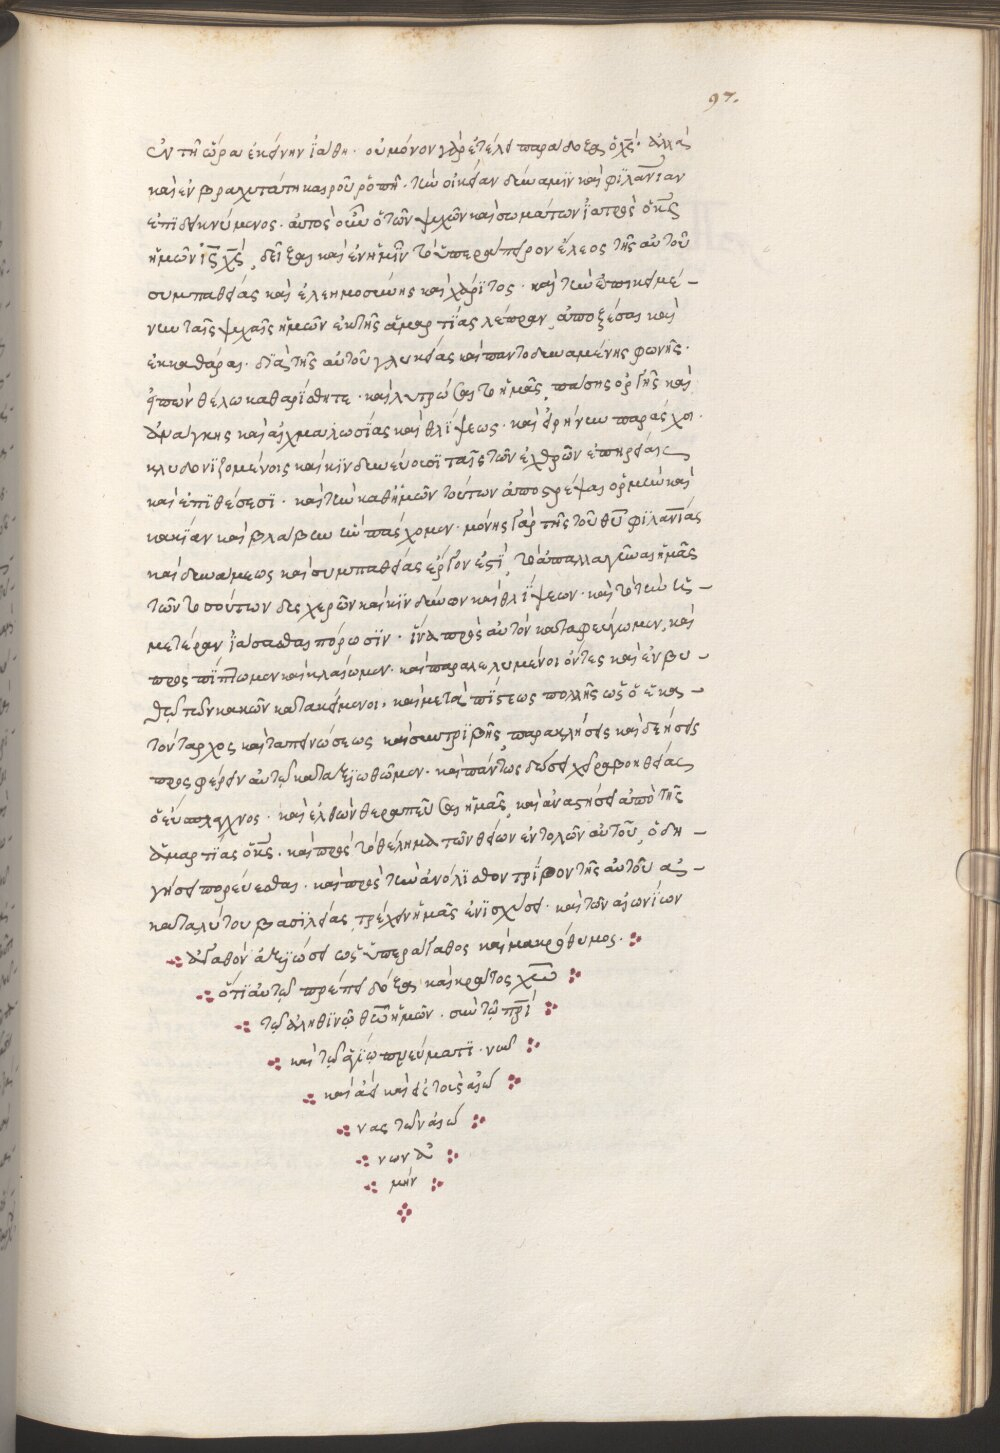 97.
ἐν τῆ ὥρα ἐκείνην ἰάθη· οὐ μόνον γὰρ ἐτέλει παράδοξα ὁ χς· ἀλλὰ
καὶ ἐν βραχυτάτη καιροῦ ῥοπῆ· τὴν οἰκείαν δύναμϊν καὶ φϊλανίαν
ἐπϊδεικνύμενος· αὐτὸς οὖν ὁ τῶν ψυχῶν καὶ σωμάτων ϊατρὸς ὁ κς
ἡμῶν ις χς, δεῖξαι καὶ ἐν ἡμῖν τὸ ὑπεράπειρον ἔλεος τῆς αὐτοῦ
συμπαθείας καὶ ἐλεημοσύνης καὶ χάρϊτος· καὶ τὴν ἐπικειμέ-
νην ταῖς ψυχαῖς ἡμῶν ἐκ τῆς ἁμαρτίας λέπραν, ἀποξέσαι καὶ
ἐκκαθάραι· δϊὰ τῆς αὐτοῦ γλυκείας καὶ παντοδυναμένης φωνῆς·
εἰπὼν θέλω καθαρίσθητε· καὶ λυτρώσαιτο ἡμᾶς, πάσης ὀργῆς καὶ
ἀνάγκης καὶ αἰχμαλωσίας καὶ θλίψεως· καὶ εἰρήνην παράσχοι·
κλυδονϊζομένοις καὶ κϊνδυνεύουσϊ ταῖς τῶν ἐχθρῶν ἐπηρείαις
καὶ ἐπϊθέσεσϊ· καὶ τὴν καθ' ἡμῶν τούτων ἀποστρέψαι ὁρμὴν καὶ
κακΐαν καὶ βλάβην ἣν πάσχομεν· μόνης γὰρ τῆς τοῦ θυ φϊλανίας
καὶ δυνάμεως καὶ συμπαθείας ἔργον ἐστϊ, τὸ ἀπαλλαγῆναι ἡμᾶς
τῶν τοσούτων δυσχερῶν καὶ κϊνδύνων καὶ θλΐψεων· καὶ τὸ τὴν ἡ-
μετέραν ϊάσασθαι πόρωσϊν· ἵνα πρὸς αὐτὸν καταφεύγωμεν, καὶ
προσπΐπτωμεν καὶ κλαίωμεν· καὶ παραλελυμένοι ὄντες καὶ ἐν βυ-
θῶ τῶν κακῶν κατακείμενοι· καὶ μετὰ πΐστεως πολλῆς ὡς ὁ ἑκα-
τόνταρχος καὶ ταπεινώσεως καὶ συντρϊβῆς, παρακλήσεις καὶ δεήσεις
προσφέρειν αὐτῶ καταξϊωθῶμεν· καὶ πάντως δώσει χεῖρα βοηθείας
ὁ εὔσπλαχνος· καὶ ἐλθὼν θεραπεῦσαι ἡμᾶς, καὶ ἀναστήσει ἀπὸ τῆς
ἁμαρτΐας ὁ κς· καὶ πρὸς τὸ θέλημα τῶν θείων ἐντολῶν αὐτοῦ, ὁδη-
γήσει πορεύεσθαι· καὶ πρὸς τὴν ἀνόλϊσθον τρΐβον τῆς αὐτοῦ ἀ-
καταλύτου βασϊλείας, τρέχειν ἡμᾶς ἐνϊσχύσει· καὶ τῶν αἰωνΐων
ἀγαθῶν ἀξϊώσει ὡς ὑπεράγαθος καὶ μακρόθυμος·
ὅτϊ αὐτῶ πρέπει δόξα καὶ κράτος χω
τῶ ἀληθϊνῶ θεῶ ἡμῶν· σὺν τῶ πρϊ
καὶ τῶ ἁγΐω πνεύματϊ· νῦν
καὶ ἀεὶ καὶ εἰς τοὺς αἰῶ
νας τῶν αἰώ
νων ἀ
μήν